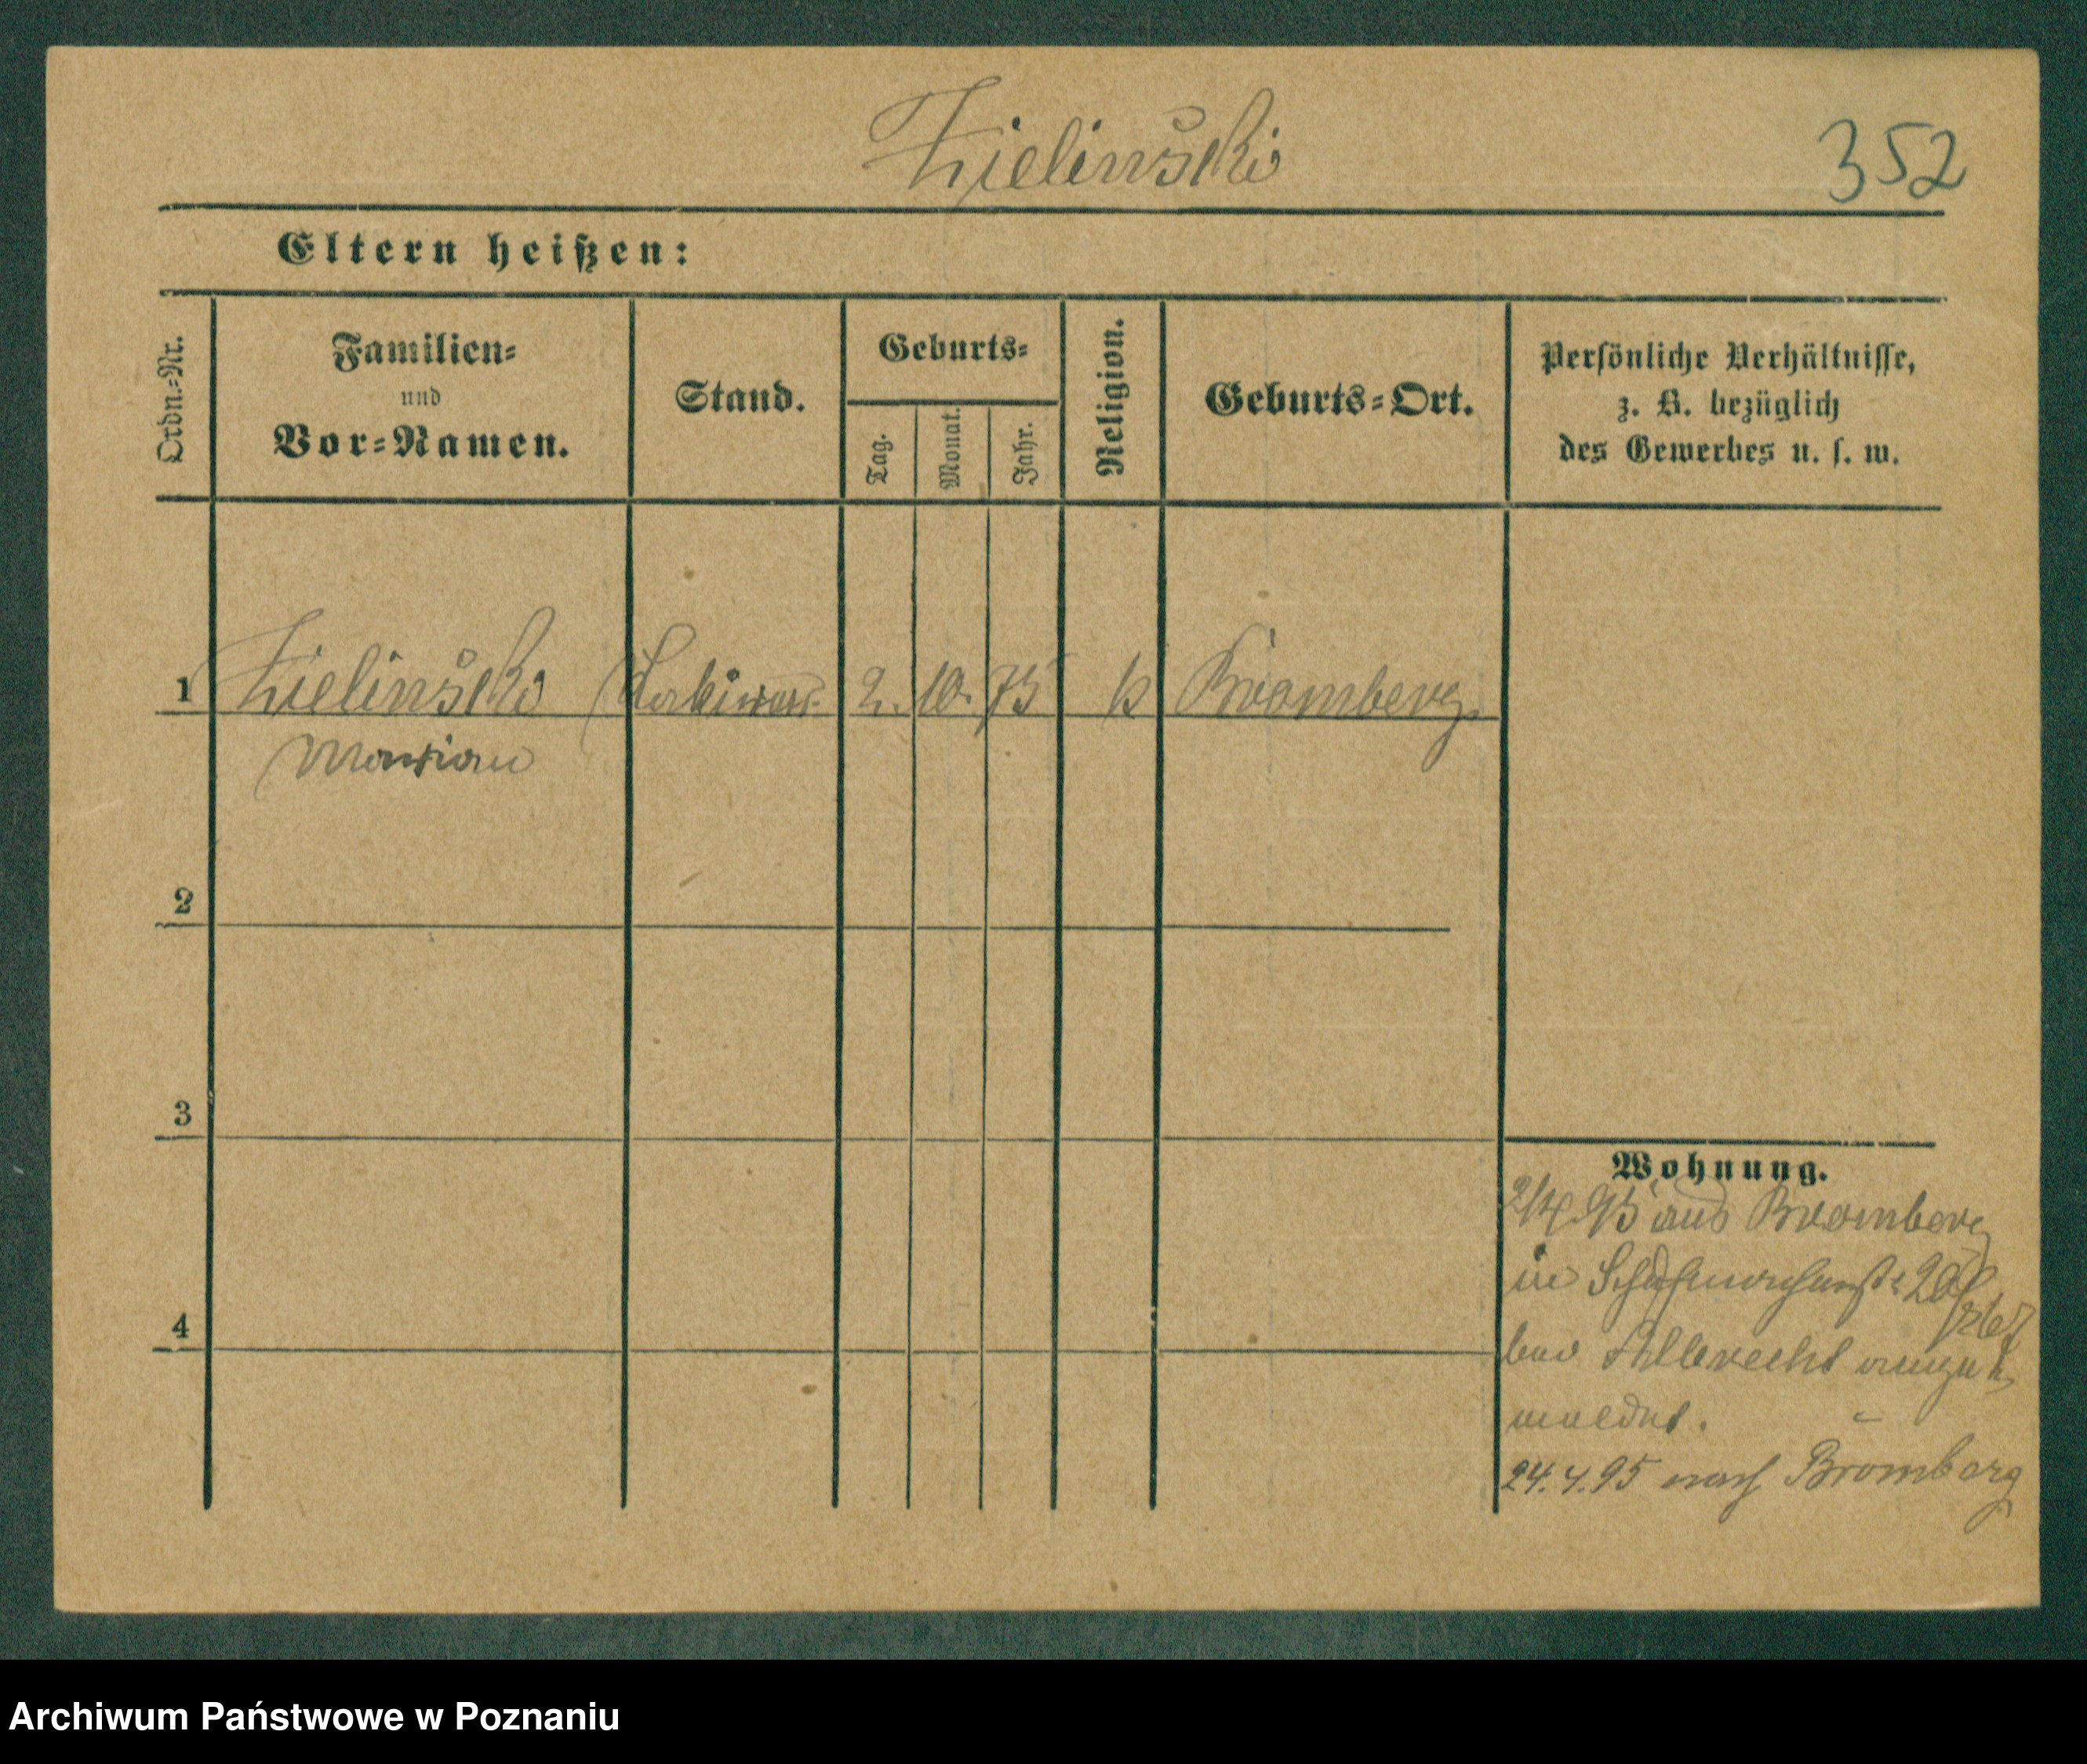 Zielinski
352
Eltern heißen:
Ordn.-Nr.
Familien-
und
Vor-Namen.
Stand.
Geburts-
Tag.
Monat.
Jahr.
Religion.
Geburts-Ort.
Persönliche Verhältnisse,
z. B. bezüglich
des Gewerbes u. s. w.
1 Zielinski 2. 10. 75 k Bromberg.
Marian
2
3
4
Wohnung.
2/4 95 aus Bromberg
in 20
bei Albrecht ange
meldet.
24.4.95 nach Bromberg
Archiwum Państwowe w Poznaniu